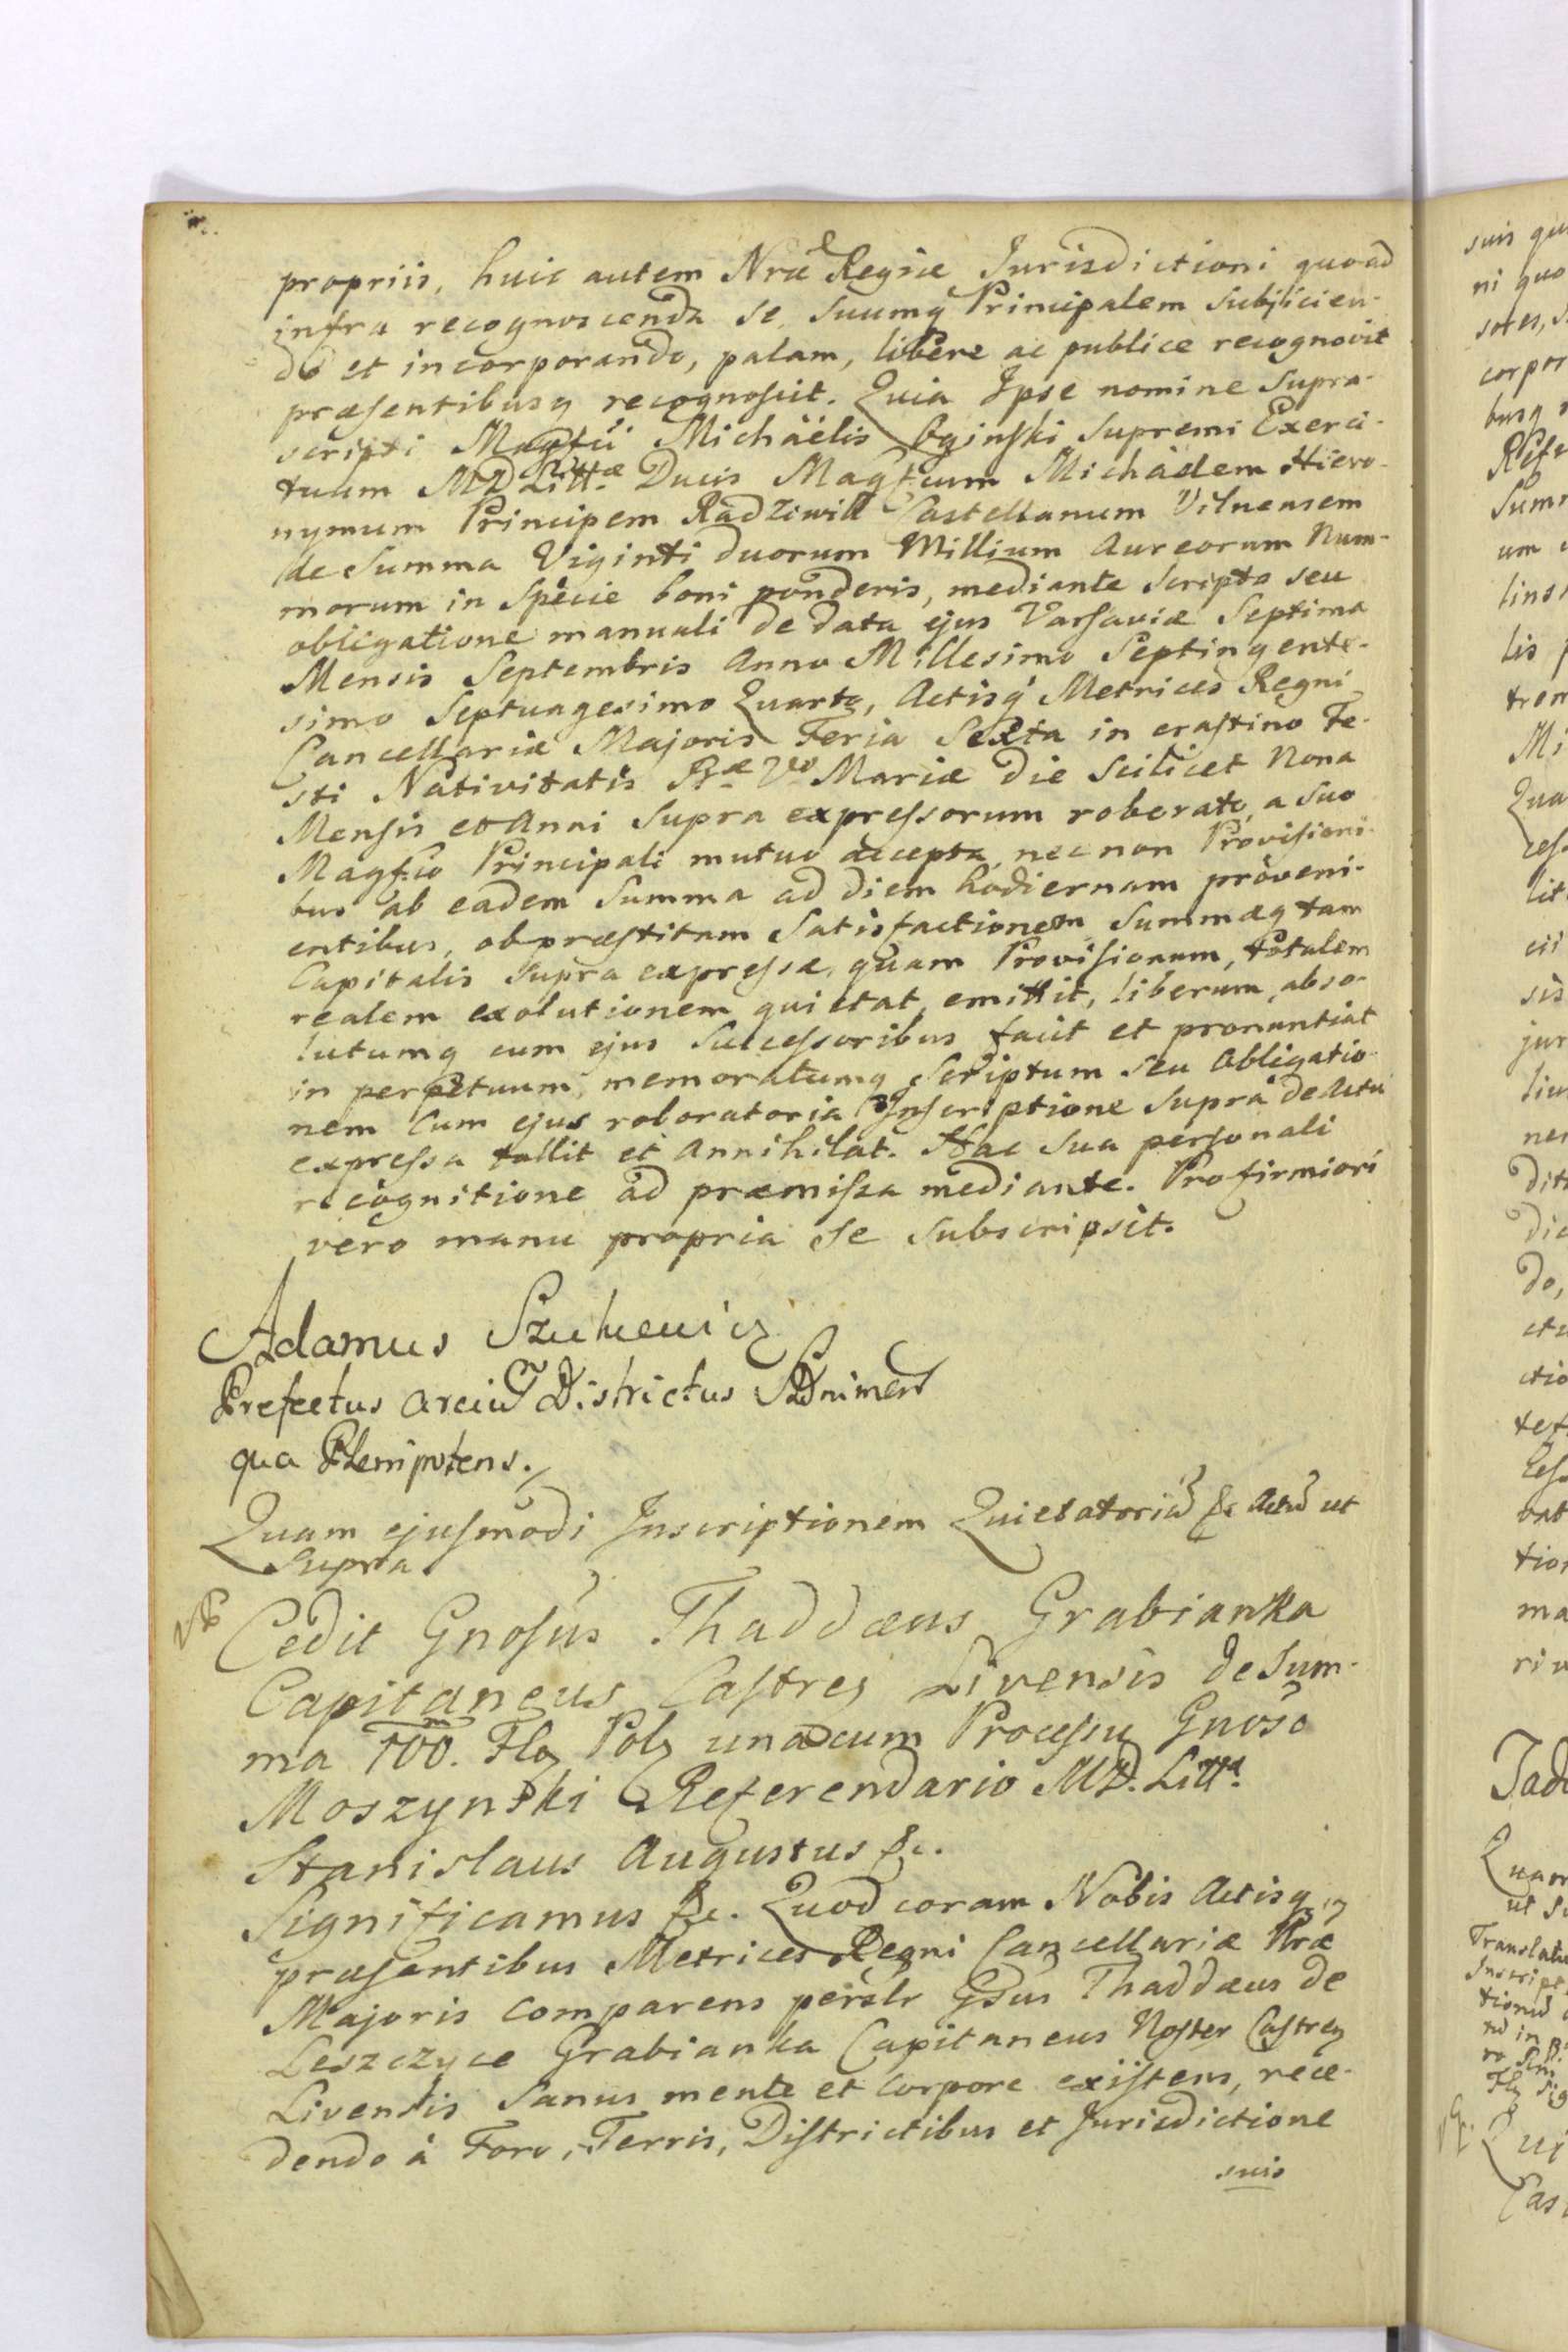 propriis, huic autem Nræ Regiæ Jurisdictioni quoad
infra recognoscenda se suumq Principalem subjicien-
do et incorporando, palam, libere ac publice recognovit
præsentibusq recognoscit. Quia Ipse nomine supra-
scripti Magfci Michäelis Oginski Supremi Exerci-
tuum MD Littæ Ducis Magfcum Michäelem Hiero-
nymum Principem Radziwill Castellanum Vilnensem
de Summa Viginti duorum Millium Aureorum Num-
morum in Specie boni ponderis, mediante Scripto seu
obligatione manuali de data ejus Varsaviæ Septima
Mensis Septembris Anno Millesimo Septingente-
simo Septuagesimo Quarto, Actisq Metrices Regni
Cancellariæ Majoris Feria Sexta in crastino Fe-
sti Nativitatis Bæ Vo Mariæ die scilicet Nona
Mensis et Anni supra expressorum roborato, a suo
Magfco Principali mutuo accepta, nec non Provisioni-
bus ab eadem Summa ad diem hodiernam proveni-
entibus, ob præstitam Satisfactionem Summæq tam
Capitalis supra expressæ, quam Provisionum, totalem
realem exolutionem quietat, emittit, liberum, abso-
lutumq cum ejus Successoribus facit et pronuntiat
in perpetuum, memoratumq Scriptum seu Obligatio-
nem Cum ejus roboratoria Inscriptione supra de actu
expressa tollit et Annihilat. Hac sua personali
recognitione ad præmissa mediante. Pro firmiori
vero manu propria se subscripsit.
Adamus
Prefectus Arciu Districtus
qua Plenipotens.
Quam ejusmodi Inscriptionem Quietatoria &c Actu ut
Supra
Cedit Gnosus Thaddæus Grabianka
Capitaneus Castreq Livensis de Sum-
ma 100. Floq Polq una cum Processu Gnoso
Moszynski Referendario MD. Litta.
Stanislaus Augustus &c.
Significamus &c. Quod coram Nobis Actisq
præsentibus Metrices Regni Cancellariæ Nræ
Majoris comparens persolr Gsus Thaddæus de
Leszczyce Grabianka Capitaneus Noster Castreq
Livensis sanus mente et corpore existens, rece-
dendo à Foro, Terris, Districtibus et Jurisdictione
suis